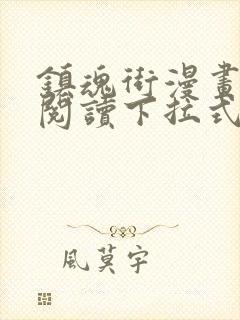 鎮魂街漫畫
閱讀下拉式
風莫宇